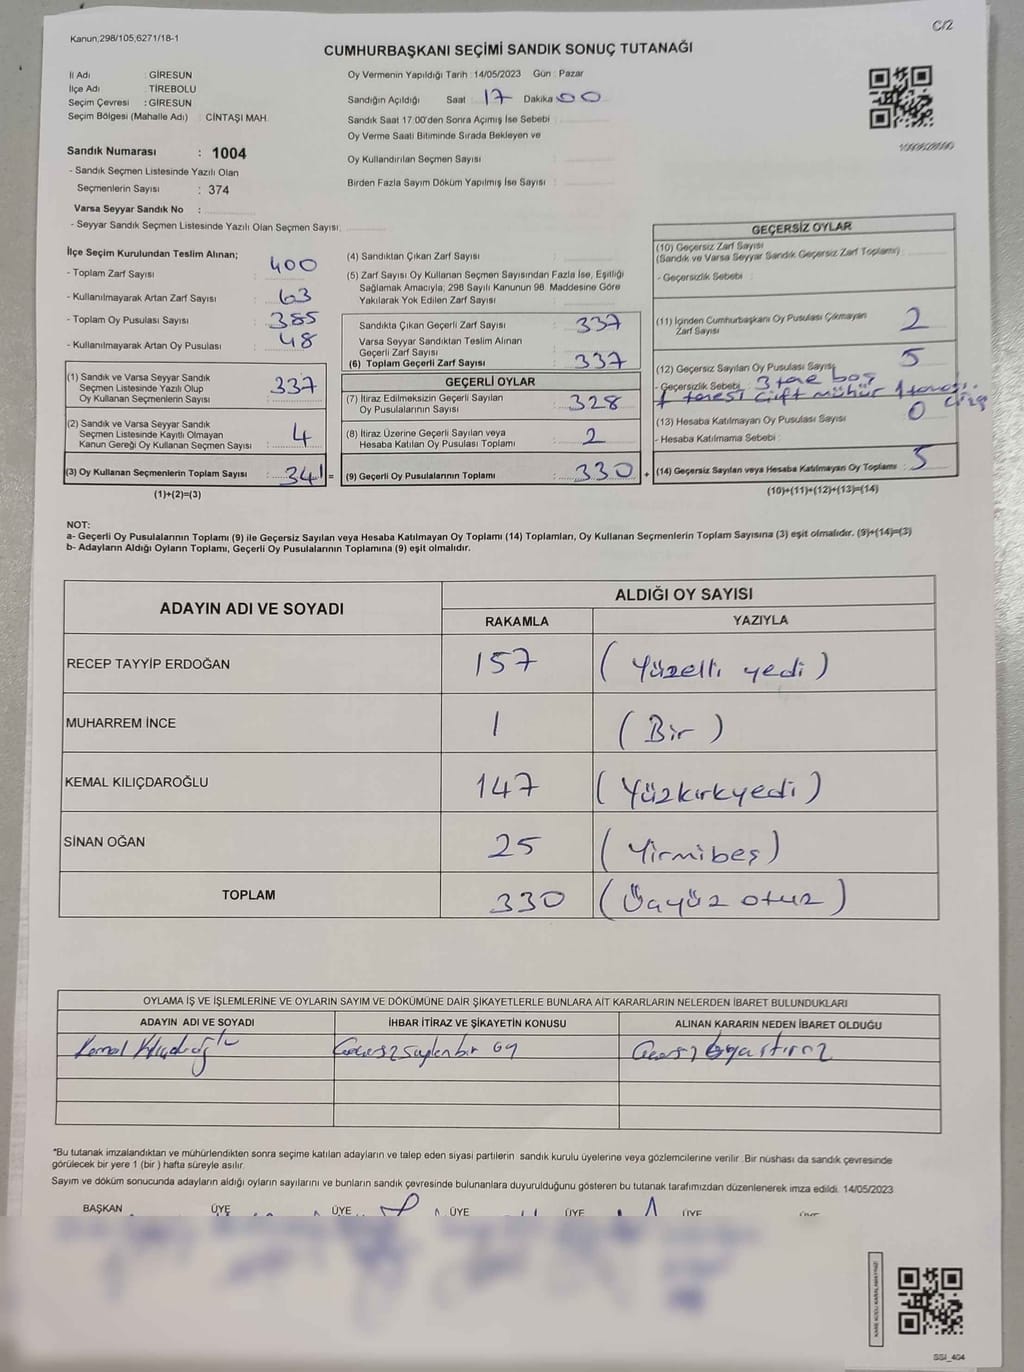 C/2
Kanun,298/105,6271/18-1
CUMHURBAŞKANI SEÇİMİ SANDIK SONUÇ TUTANAĞI
İl Adı : GİRESUN
İlçe Adı : TİREBOLU
Seçim Çevresi : GİRESUN
Seçim Bölgesi (Mahalle Adı) : CİNTAŞI MAH.
Sandık Numarası : 1004
- Sandık Seçmen Listesinde Yazılı Olan
Seçmenlerin Sayısı : 374
Varsa Seyyar Sandık No :
- Seyyar Sandık Seçmen Listesinde Yazılı Olan Seçmen Sayısı:
Oy Vermenin Yapıldığı Tarih :14/05/2023 Gün : Pazar
Sandığın Açıldığı Saat : 17 Dakika 00
Sandık Saat 17.00'den Sonra Açımış İse Sebebi :
Oy Verme Saati Bitiminde Sırada Bekleyen ve
Oy Kullandırılan Seçmen Sayısı :
Birden Fazla Sayım Döküm Yapılmış İse Sayısı :
İlçe Seçim Kurulundan Teslim Alınan;
- Toplam Zarf Sayısı : 400
- Kullanılmayarak Artan Zarf Sayısı : 63
- Toplam Oy Pusulası Sayısı : 385
- Kullanılmayarak Artan Oy Pusulası : 48
(1) Sandık ve Varsa Seyyar Sandık
Seçmen Listesinde Yazılı Olup
Oy Kullanan Seçmenlerin Sayısı : 337
(2) Sandık ve Varsa Seyyar Sandık
Seçmen Listesinde Kayıtlı Olmayan
Kanun Gereği Oy Kullanan Seçmen Sayısı : 4
(3) Oy Kullanan Seçmenlerin Toplam Sayısı : 341 =
(1)+(2)=(3)
(4) Sandıktan Çıkan Zarf Sayısı :
(5) Zarf Sayısı Oy Kullanan Seçmen Sayısından Fazla İse, Eşitliği
Sağlamak Amacıyla, 298 Sayılı Kanunun 98. Maddesine Göre
Yakılarak Yok Edilen Zarf Sayısı :
Sandıkta Çıkan Geçerli Zarf Sayısı : 337
Varsa Seyyar Sandıktan Teslim Alınan
Geçerli Zarf Sayısı :
(6) Toplam Geçerli Zarf Sayısı : 337
GEÇERLİ OYLAR
(7) İtiraz Edilmeksizin Geçerli Sayılan
Oy Pusulalarının Sayısı : 328
(8) İtiraz Üzerine Geçerli Sayılan veya
Hesaba Katılan Oy Pusulası Toplamı : 2
(9) Geçerli Oy Pusulalarının Toplamı : 330 +
GEÇERSİZ OYLAR
(10) Geçersiz Zarf Sayısı
(Sandık ve Varsa Seyyar Sandık Geçersiz Zarf Toplamı) :
- Geçersizlik Sebebi :
(11) İçinden Cumhurbaşkanı Oy Pusulası Çıkmayan
Zarf Sayısı : 2
(12) Geçersiz Sayılan Oy Pusulası Sayısı : 5
- Geçersizlik Sebebi : 3 tane boş
1 tanesi çift mühür 1 tanesi çizgi
(13) Hesaba Katılmayan Oy Pusulası Sayısı : 0
- Hesaba Katılmama Sebebi :
(14) Geçersiz Sayılan veya Hesaba Katılmayan Oy Toplamı : 5
(10)+(11)+(12)+(13)=(14)
NOT:
a- Geçerli Oy Pusulalarının Toplamı (9) ile Geçersiz Sayılan veya Hesaba Katılmayan Oy Toplamı (14) Toplamları, Oy Kullanan Seçmenlerin Toplam Sayısına (3) eşit olmalıdır. (9)+(14)=(3)
b- Adayların Aldığı Oyların Toplamı, Geçerli Oy Pusulalarının Toplamına (9) eşit olmalıdır.
ADAYIN ADI VE SOYADI ALDIĞI OY SAYISI
RAKAMLA YAZIYLA
RECEP TAYYİP ERDOĞAN 157 ( Yüzelli yedi )
MUHARREM İNCE 1 ( Bir )
KEMAL KILIÇDAROĞLU 147 ( Yüzkırkyedi )
SİNAN OĞAN 25 ( Yirmibeş )
TOPLAM 330 ( Üçyüz otuz )
OYLAMA İŞ VE İŞLEMLERİNE VE OYLARIN SAYIM VE DÖKÜMÜNE DAİR ŞİKAYETLERLE BUNLARA AİT KARARLARIN NELERDEN İBARET BULUNDUKLARI
ADAYIN ADI VE SOYADI İHBAR İTİRAZ VE ŞİKAYETİN KONUSU ALINAN KARARIN NEDEN İBARET OLDUĞU
Kemal Kılıçdaroğlu Geçersiz sayılan bir oy Geçersiz
*Bu tutanak imzalandıktan ve mühürlendikten sonra seçime katılan adayların ve talep eden siyasi partilerin sandık kurulu üyelerine veya gözlemcilerine verilir. Bir nüshası da sandık çevresinde
görülecek bir yere 1 (bir ) hafta süreyle asılır.
Sayım ve döküm sonucunda adayların aldığı oyların sayılarını ve bunların sandık çevresinde bulunanlara duyurulduğunu gösteren bu tutanak tarafımızdan düzenlenerek imza edildi. 14/05/2023
BAŞKAN ÜYE ÜYE ÜYE ÜYE ÜYE
SSI_404